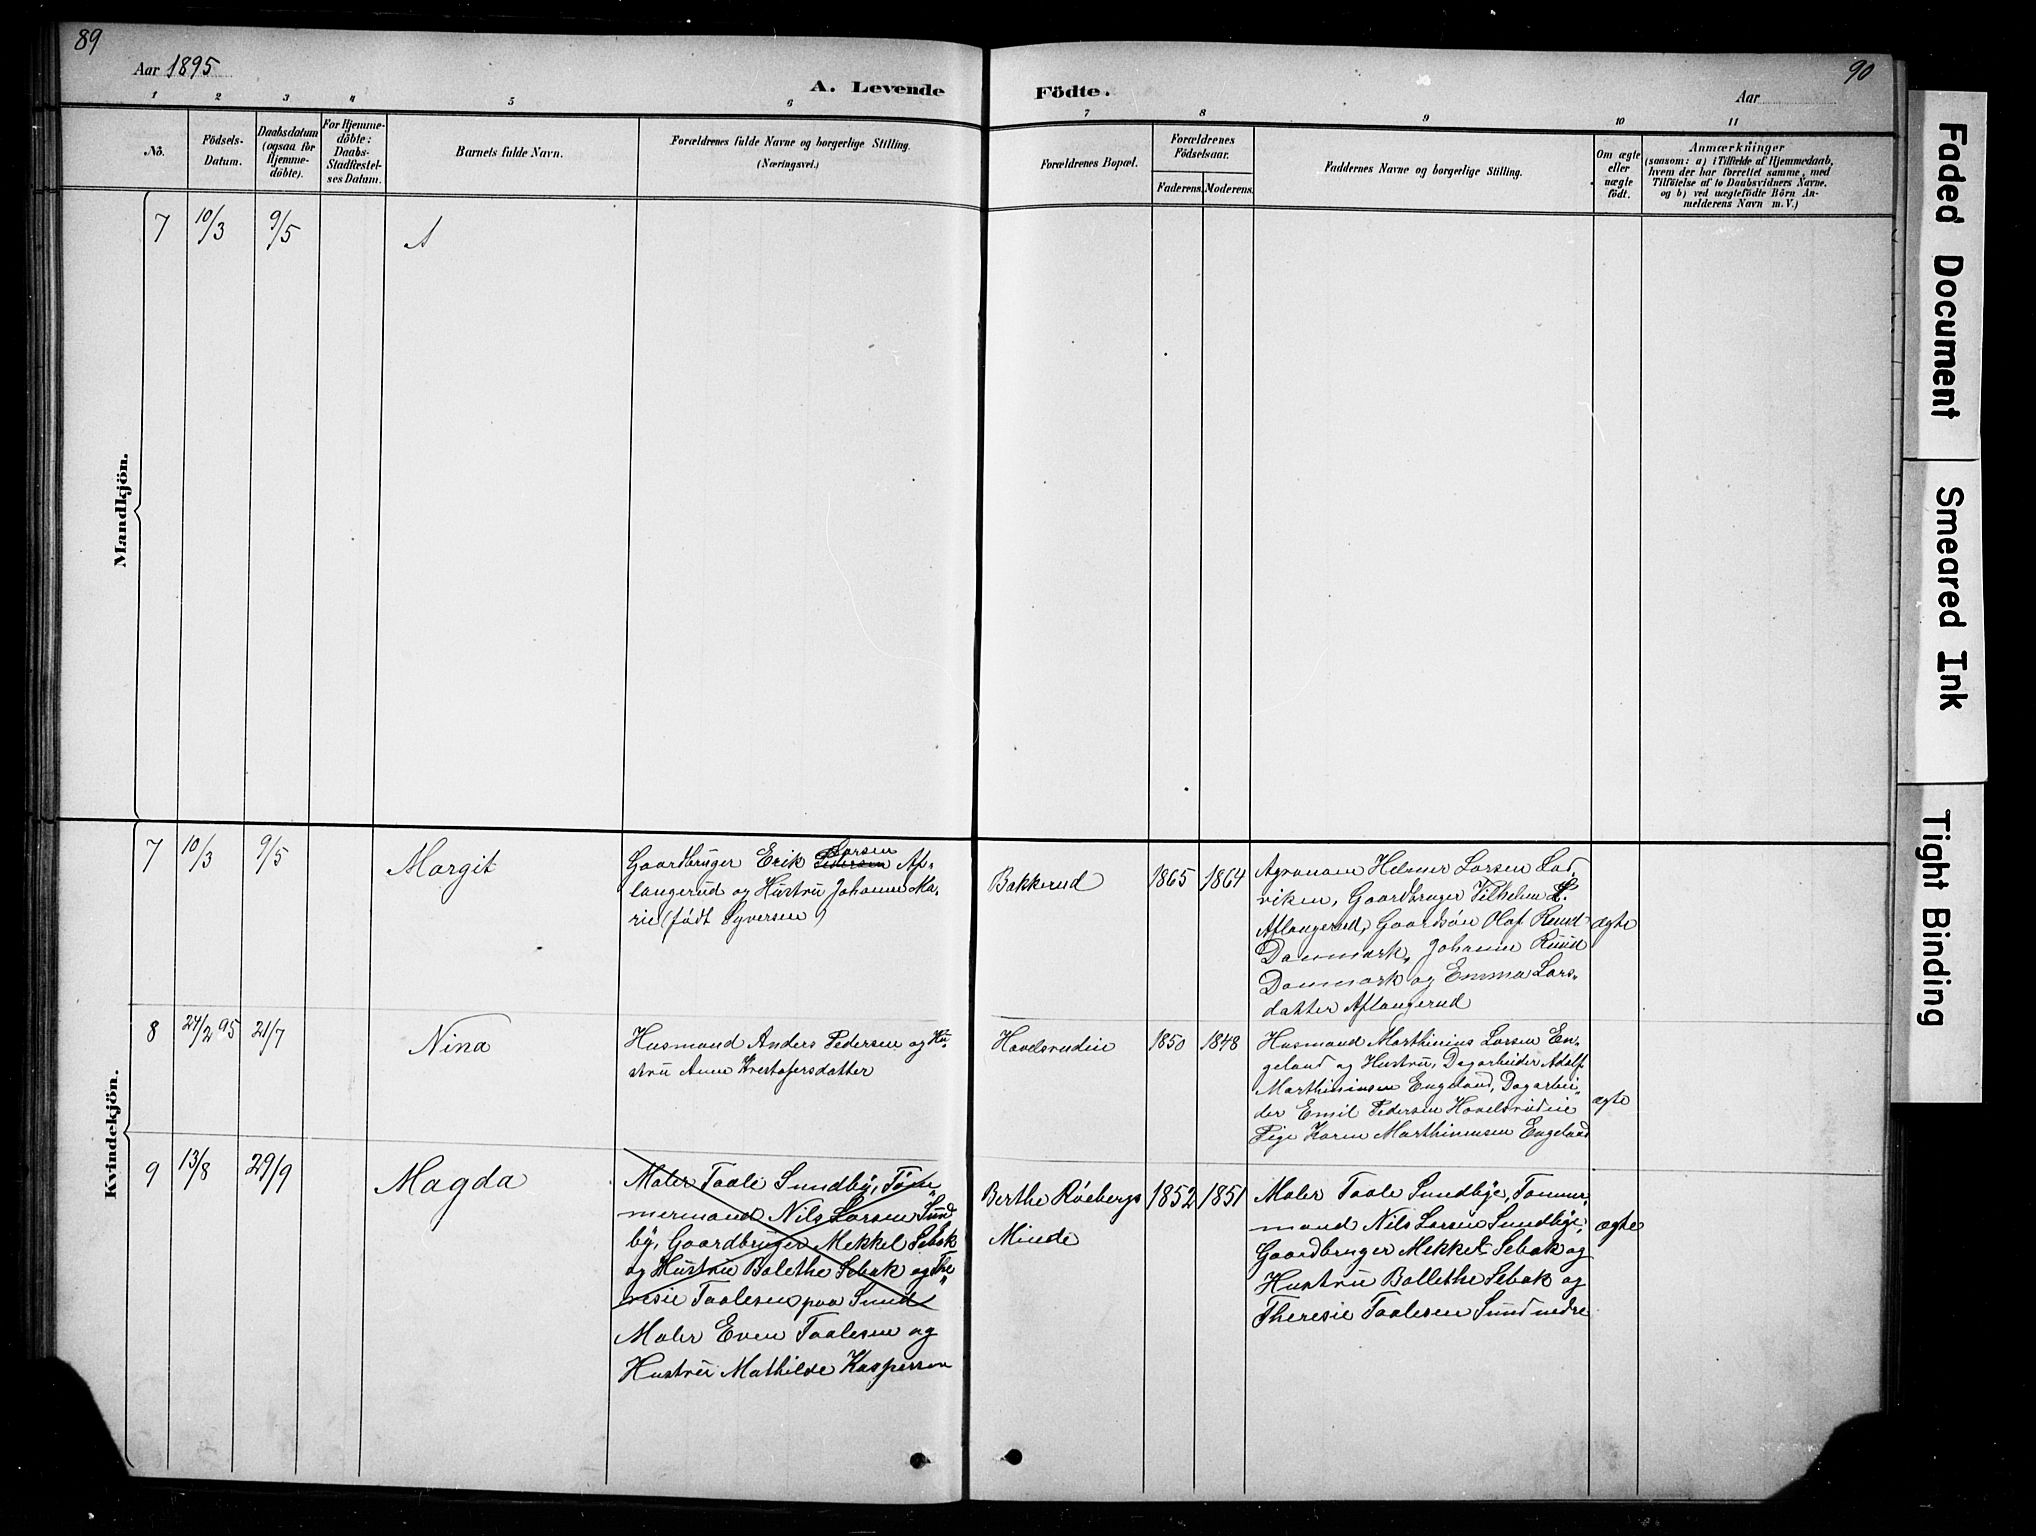 89
Aar 1895
A. Levende
Födte.
Aar
90
1 2 3 4 5 6 7 8 9 10 11
No.
Födsels-
Datum.
Daabsdatum
(ogsaa for
Hjemme-
döbte).
For Hjemme-
döbte:
Daabs-
Stadfæstel-
ses Datum.
Barnets fulde Navn.
Forældrenes fulde Navne og borgerlige Stilling.
(Næringsvei.)
Forældrenes Bopæl.
Forældrenes
Födselsaar.
Faderens. Moderens.
Faddernes Navne og borgerlige Stilling.
Om ægte
eller
uægte
födt.
Anmærkninger
(saasom: a) i Tilfælde af Hjemmedaab,
hvem der har forrettet samme, med
Tilföielse af to Daabsvidners Navne.
og b) ved uægtefödte Börn An-
melderens Navn m. V.)
Mandkjön.
7 10/3 9/5 A
Kvindekjön.
7 10/3 9/5 Margit
Gaardbruger Erik Pedersen Larsen Af-
langerud og Hustru Johanne Ma-
rie (født Syversen)
Bakkerud
1865 1864
Agronom Helmer Larsen Lad-
viken, Gaardbruger Vilhelm L.
Aflangerud, Gaardsøn Olaf Ruud
Danmark, Johanne Ruud
Danmark og Emma Lars-
datter Aflangerud
ægte
8 24/2 95 21/7 Nina
Husmand Anders Pedersen og Hu-
stru Anne Krestofersdatter
Havelsrudeie
1850 1848
Husmand Marthinius Larsen En-
geland og Hustru, Dagarbeider Adolf
Marthiniusen Engeland, Dagarbei-
der Emil Pedersen Havelsrudeie
Pige Karen Marthinusen Engeland
ægte
9 13/8 29/9 Magda
Maler Taale Sundby, Tøm-
mermand Nils Larsen Sund
by, Gaardbruger Mekkel Sebak
og Hustru Balethe Sebak og The
resie Taalesen paa Sund
Maler Even Taalesen og
Hustru Mathilde Kaspersen
Berthe Røebergs
Minde
1852 1851
Maler Taale Sundbye, Tømmer-
mand Nils Larsen Sundbye,
Gaardbruger Mekkel Sebak og
Hustru Ballethe Sebak og
Theresie Taalesen Sund nedre
ægte
Faded Document
Smeared Ink
Tight Binding